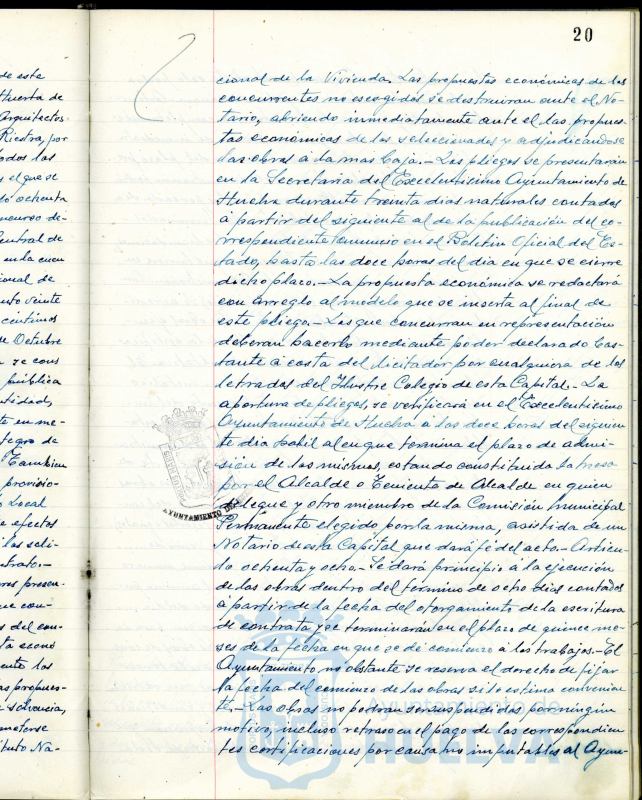 20
de este
Huerta de
Arquitectos
Riestra, por
todos las
s el que se
dó ochenta
ncurso de-
Central de
en la cuen
ional de
unto veinte
céntimos
de Octubre
se cons
pública
ntidad,
te en me-
tegro de
Tambien
provisio-
Local
e efectos
las soli-
trato.-
res presen-
ue con-
s del con-
ta econo
ente los
as propues-
solvencia,
meterse
tituto Na-
cional de la Vivienda. Las propuestas económicas de los
concurrentes no escogidos se destruiran ante el No-
tario, abriendo inmediatamente ante el las propues-
tas económicas de los seleccionados y adjudicandose
las obras á la mas baja.- Los pliegos se presentarán
en la Secretaria del Excelentisimo Ayuntamiento de
Huelva durante treinta dias naturales contados
á partir del siguiente al de la publicación del co-
rrespondiente anuncio en el Boletin Oficial del Es-
tado, hasta las doce horas del dia en que se cierre
dicho plazo.- La propuesta económica se redactará
con arreglo al modelo que se inserta al final de
este pliego.- Los que concurran en representación
deberan hacerlo mediante poder declarado bas-
tante á costa del licitador por cualquiera de los
letrados del Ilustre Colegio de esta Capital.- La
apertura de pliegos, se verificará en el Excelentisimo
Ayuntamiento de Huelva á las doce horas del siguien-
te dia habil al en que termina el plazo de admi-
sión de los mismos, estando constituida la mesa
por el Alcalde o Teniente de Alcalde en quien
delegue y otro miembro de la Comisión Municipal
Permanente elegido por la misma, asistida de un
Notario de esta Capital que dará fé del acto.- Articu-
lo ochenta y ocho.- Se dará principio á la ejecución
de las obras dentro del termino de ocho dias contados
á partir de la fecha del otorgamiento de la escritura
de contrata y se terminarán en el plazo de quince me-
ses de la fecha en que se dé comienzo á los trabajos.- El
Ayuntamiento no obstante se reserva el derecho de fijar
la fecha del comienzo de las obras si lo estima convenien-
te.- Las obras no podran ser suspendidas por ningun
motivo, incluso retraso en el pago de las correspondien-
tes certificaciones por causa no imputables al Ayun-
AYUNTAMIENTO DE
Ayuntamiento de
HUELVA